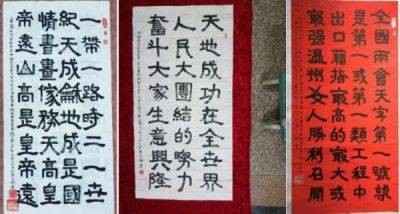 一帶一路時二一世
紀天成龢地成是國
情書畫傢務天高皇
帝遠山高是皇帝遠
天地成功在全世界
人民大團結的努力
奮斗大家生意興隆
全國兩會天字第一號隸
是第一或第一類工程中
出口藉搭最高的最大或
最强温州女人勝利召開